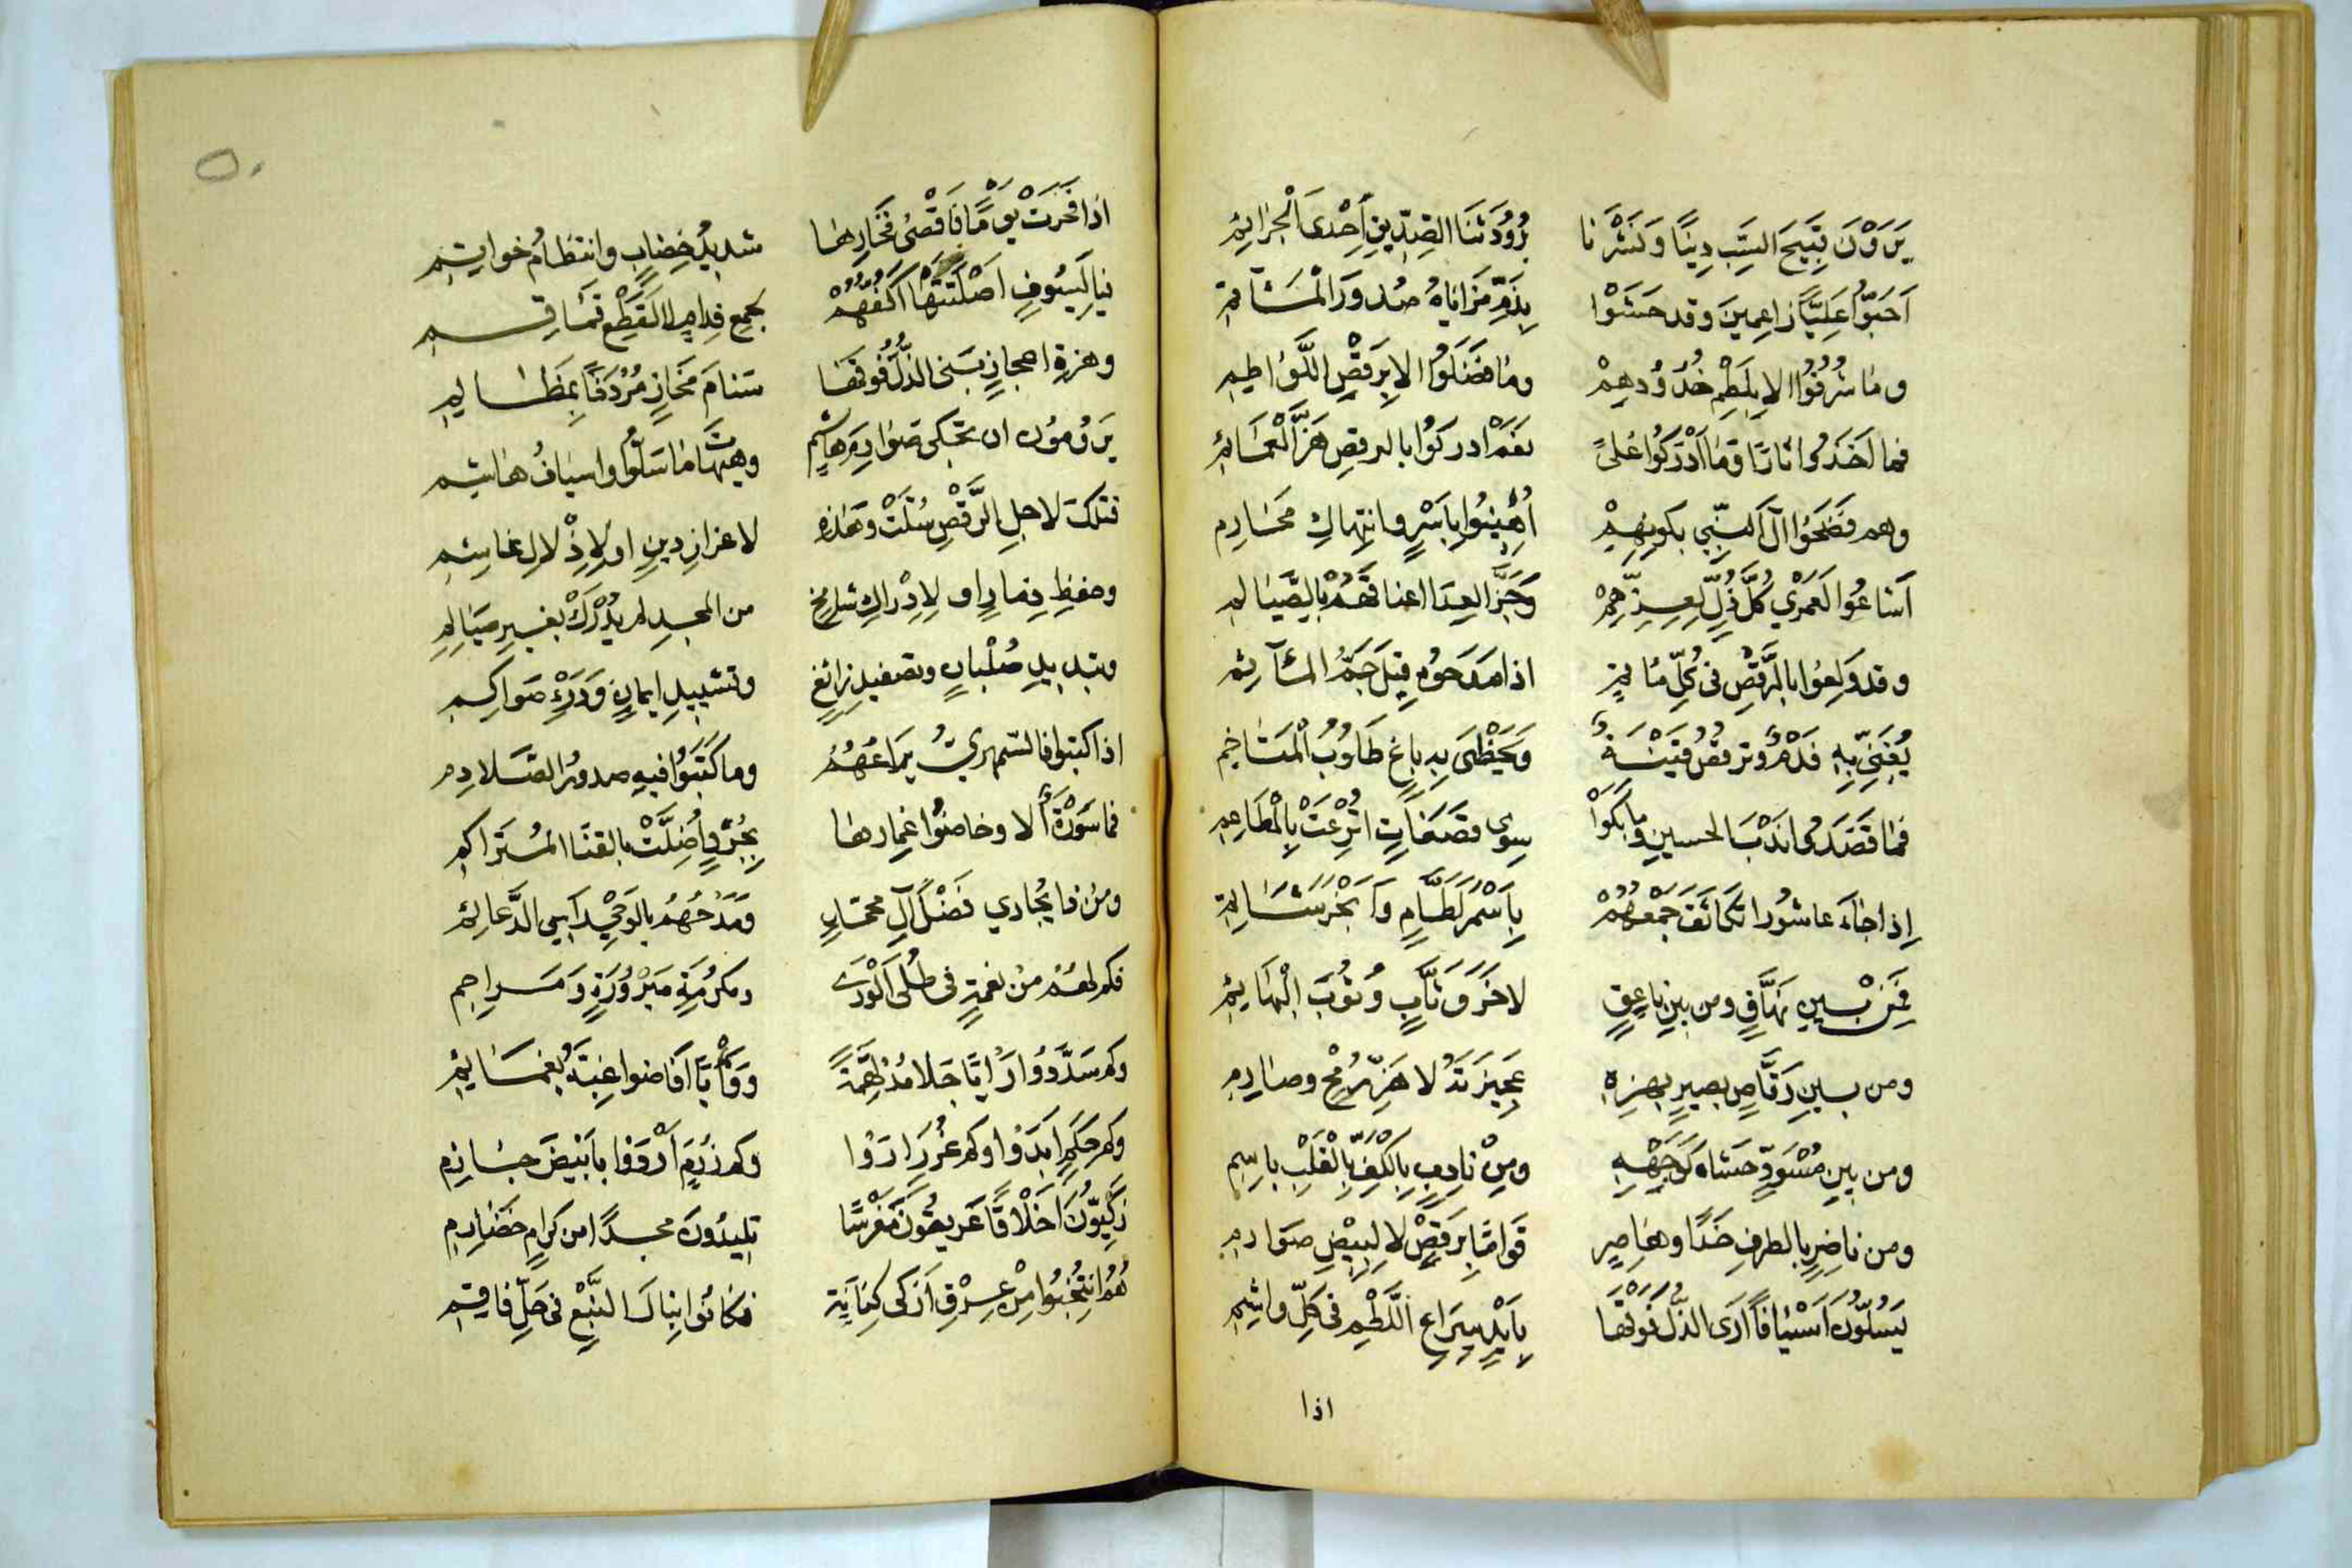 يَرَوْنَ قَبِيحَ السَّبِّ دِينًا وَنَشْرَنَا بُرُودَ ثَنَا الصِّدِّيقِ اِحْدَى الْجَرَائِمِ
اَحَبُّوا عَلِيًّا زاعِمِينَ وقد حَشَوْا بِذَمِّ مَزَاياهُ صُدورَ الْمَشَآئِمِ
وما شُرِّفُوا الا بِلَطْمِ خُدُودِهِمْ وما فَضَلُوا الا بِرَقْصِ اللَّوَاطِمِ
فما اَخَذُوا ثارًا وَمَا اَدْرَكُوا عُلىً نعَمْ ادركُوا بالرقصِ هَزَّ الْعَمَائِمِ
وهم فَضَحُوا آلَ النَّبِيِّ بكونِهِمْ اُهِينُوا بِاَسْرٍ وانتِهاكِ مَحَارِمِ
اَشَاعُوا لَعَمْرِي كُلَّ ذُلٍّ لِعِزِّهِمْ وَجَزَّ العِدَا اعناقَهُمْ بِالصَّيَالِمِ
وقد وَلِعُوا بالرَّقْصِ في كُلِّ مأتمٍ اذا مَدَحُوهِ قِيلَ جَمُّ المَآثِمِ
يُغَنِّي بِهِ فَدْمٌ وترقصُ قَيْنَةٌ وَيَحْظَى بِهِ باغٍ طَلُوبُ الْمَشَاخِمِ
فما قَصَدُوا نَدْبَ الحسينِ وما بَكَوْا سِوى قَصَعَاتٍ اُتْرِعَتْ بِالْمَطَاعِمِ
إذا جَاءَ عاشُورا تكَاثَفَ جَمْعُهُمْ بِاَسْمَرَ لَطَّامٍ وَاَبْخَرَ شَاتِمِ
فَمِنْ بَينِ نَهَّاقٍ ومن بينِ ناعِقٍ لاخَرَ وثَّابٍ وُثُوبَ الْبَهَائِمِ
ومن بينِ رَقَّاصٍ بصيرٍ بهزِهِ عَجِيزَتَهُ لا هَزِّ رُمْحٍ وصارِمِ
ومن بينِ مُسْوَدٍّ حَشَاهُ كَوَجْهِهِ ومِنْ نادِبٍ بِالْكَفِّ بِالْقَلْبِ باسِمِ
ومن ناضِرٍ بالطرفِ خَدًّا وهَاصِرٍ قَوَامًا بِرَقْصٍ لا لِبِيْضِ صَوَارمِ
يَسُلُّونَ اَسْيَافًا اَرَى الذُّلَّ فَوْقَهَا بِاَيْدٍ سِرَاعِ اللَّطْمِ في كلِّ واشِمِ
اذا
اذا فَخَرَتْ يومًا فَاَقْصَى فَخَارِهَا شَدِيدُ خِضَابٍ وانتظامُ خواتِمِ
فيا لَسُيُوفٍ اَصْلَتَتْهَا اَكُفُّهُمْ
وهزةِ اعجازٍ بَنَى الذُّلُّ فَوقَهَا سَنَامَ مَخَازٍ مُرْدَفًا بِمَظَالِمِ
يَرُومُونَ ان تحكى صَوَارِمَ هاشِمٍ وهيهاتَ مَا سَلُّوا واسيافُ هاشمِ
فتلكَ لاجلِ الرَّقْصِ سُلَّتْ وهَذِهِ لاعزازِ دينٍ او لِاِذْلالِ غاشِمِ
وحفظِ ذمارٍ او لِاِدْراكِ شامِخٍ من المجدِ لم يُدْرَكْ بغيرِ صَيَالِمِ
وتبديدِ صُلْبانٍ وتصفيدِ زائغٍ وتشييدِ ايمانٍ وَدَرْءِ
اذا كتبوا فالسّمهريُّ يَرَاعُهُمْ وما كَتَبُوا فيهِ صدورُ الصَّلادِمِ
فما سَوْرَةٌ الا وخاضُوا غِمارها بِجُرْدٍ اُضِلَّتْ بالقنَا المُتَرَاكِمِ
ومن ذا يُجَاري فَضْلَ آلِ محمّدٍ وَمَدْحُهُمُ بالوحْيِ سامي الدَّعائِمِ
فكم لهمُ من نعمةٍ في طُلَى الْوَرَى ومكرُمَةٍ مَبْرُورَةٍ وَمَراحِمِ
وكم سَدَّدُوا رَايًا جَلا مُدْلَهِمَّةً
وكم حِكَمٍ ابْدَوْا وكم غُرَرٍ اَرَوْا وكم زُمَمٍ اَرْوَوْا بِاَبْيَضَ جازمِ
زَكِيُّونَ اَخْلاقًا عَرِيقُونَ مَغْرسًا تَلِيدُونَ مجدًا من كِرامٍ خَضَارِمِ
هُمُ انْتُخِبُوا مِنْ عِرْقِ اَزْكَى كِنَانَةٍ فكانُوا نِبالَ النَّبْعِ في كلِّ فاقِمِ
٥٠